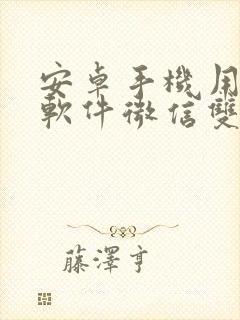 安卓手機用
軟件微信雙
藤澤亨